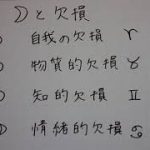 ☽と欠損
自我の欠損 ♈
物質的欠損 ♉
知的欠損 ♊
情緒的欠損 ♋